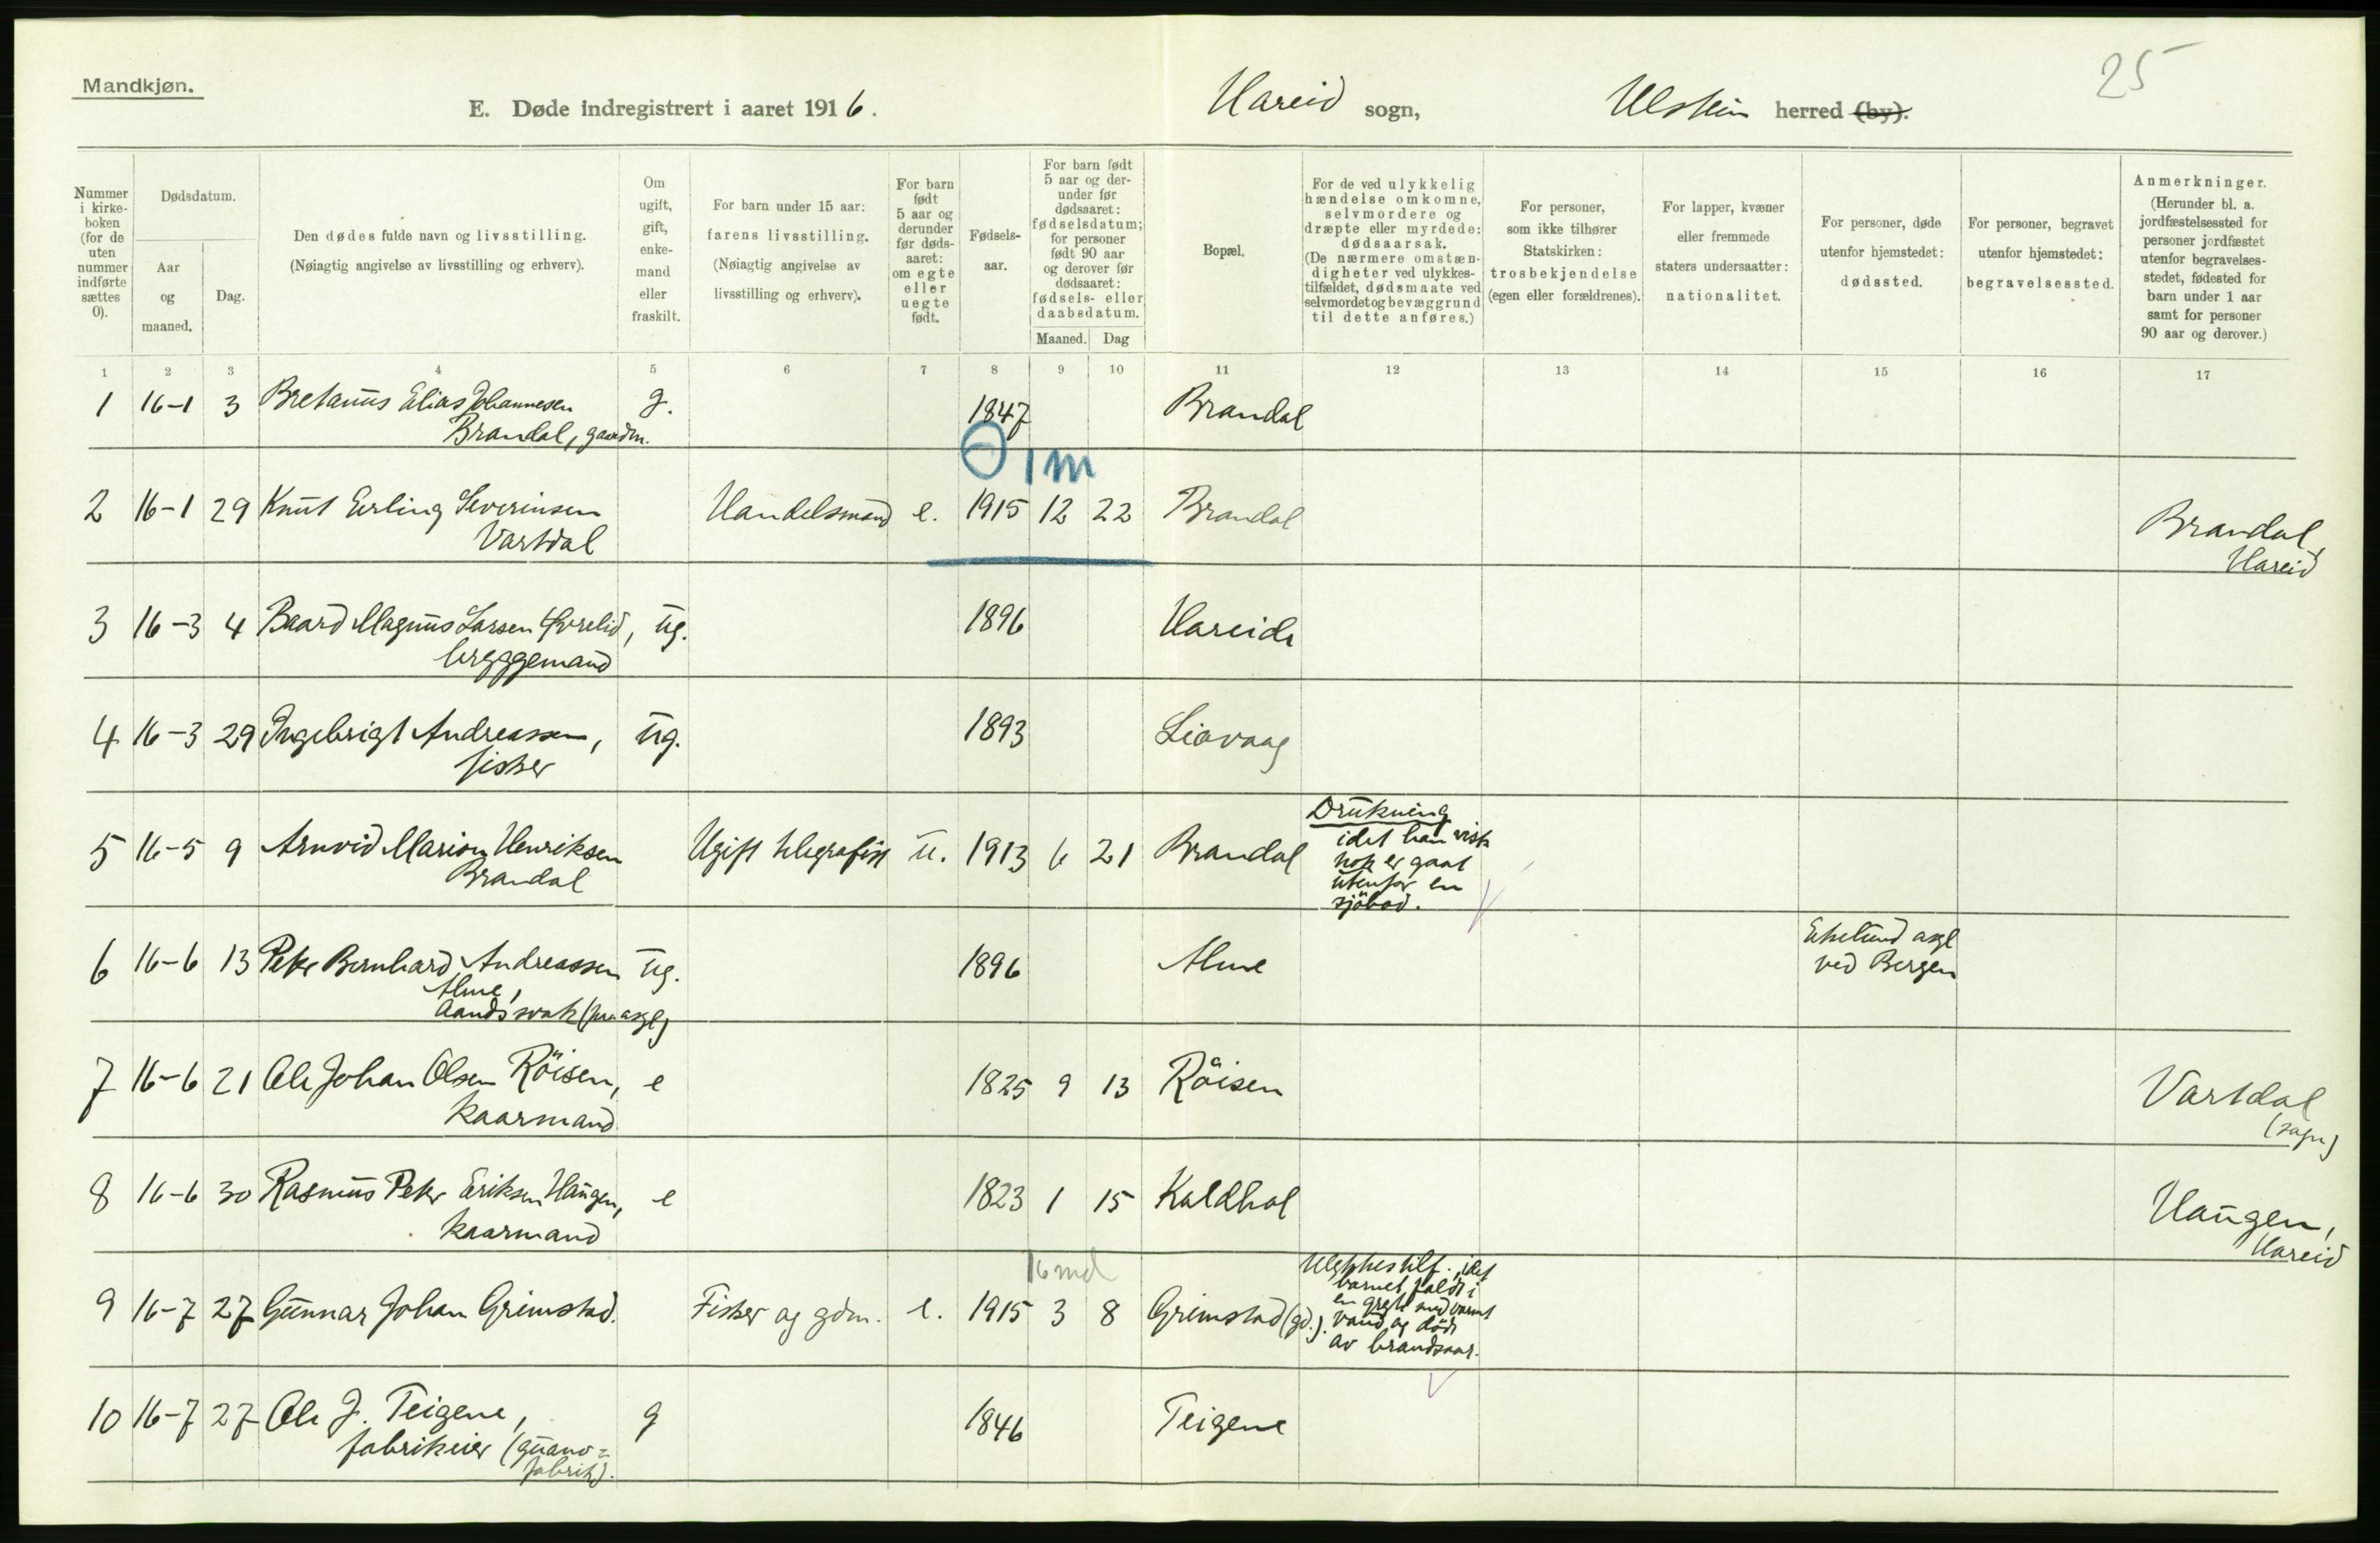 25
Mandkjøn.
E. Døde indregistrert i aaret 1916. Hareid sogn, Ulstein herred (by).
Nummer i kirke-boken (for de uten nummer indførte sættes 0).
Dødsdatum.
Aar og maaned.
Dag.
Den dødes fulde navn og livsstilling.
(Nøiagtig angivelse av livsstilling og erhverv).
Om ugift, gift, enke-mand eller fraskilt.
For barn under 15 aar: farens livsstilling.
(Nøiagtig angivelse av livsstilling og erhverv).
For barn født 5 aar og derunder før døds-aaret: om egte eller uegte født.
Fødsels-aar.
For barn født 5 aar og der-under før dødsaaret: fødselsdatum; for personer født 90 aar og derover før dødsaaret: fødsels- eller daabsdatum.
Maaned. Dag
Bopæl.
For de ved ulykkelig hændelse omkomne, selvmordere og dræpte eller myrdede: dødsaarsak. (De nærmere omstæn-digheter ved ulykkes-tilfældet, dødsmaate ved selvmordet og bevæggrund til dette anføres.)
For personer, som ikke tilhører Statskirken: trosbekjendelse (egen eller forældrenes).
For lapper, kvæner eller fremmede staters undersaatter: nationalitet.
For personer, døde utenfor hjemstedet: dødssted.
For personer, begravet utenfor hjemstedet: begravelsessted.
Anmerkninger. (Herunder bl. a. jordfæstelsessted for personer jordfæstet utenfor begravelses-stedet, fødested for barn under 1 aar samt for personer 90 aar og derover.)
1 2 3 4 5 6 7 8 9 10 11 12 13 14 15 16 17
1 16-1 3 Bretanus Elias Johannesen g. 1847 Brandal
Brandal, gaardm.
0 1 m
2 16-1 29 Knut Erling Severinsen Handelsmand e. 1915 12 22 Brandal Brandal,
Vartdal Hareid
3 16-3 4 Baard Magnus Larsen Øvrelid, ug. 1896 Hareide
bryggemand
4 16-3 29 Ingebrigt Andreassen, ug. 1893 Liavaag
fisker
5 16-5 9 Arnvid Marion Henriksen Ugift telegrafist u. 1913 6 21 Brandal Drukning
Brandal idet han vist
nok er gaat
utenfor en
sjöbod.
6 16-6 13 Peter Bernhard Andreassen ug. 1896 Alme Ekelund asyl
Alme, ved Bergen
aandssvak (paa asyl)
7 16-6 21 Ole Johan Olsen Röisen, e 1825 9 13 Röisen Vartdal
kaarmand (sogn)
8 16-6 30 Rasmus Peter Eriksen Haugen, e 1823 1 15 Kaldhol Haugen,
kaarmand Hareid
16 md
9 16-7 27 Gunnar Johan Grimstad. Fisker og gdm. e. 1915 3 8 Grimstad (gd.). Ulykkestilf. idet
barnet faldt i
en gryte med varmt
vand og döde
av brandsaar.
10 16-7 27 Ole J. Teigene, g 1846 Teigene
fabrikeier (guano-
fabrik).